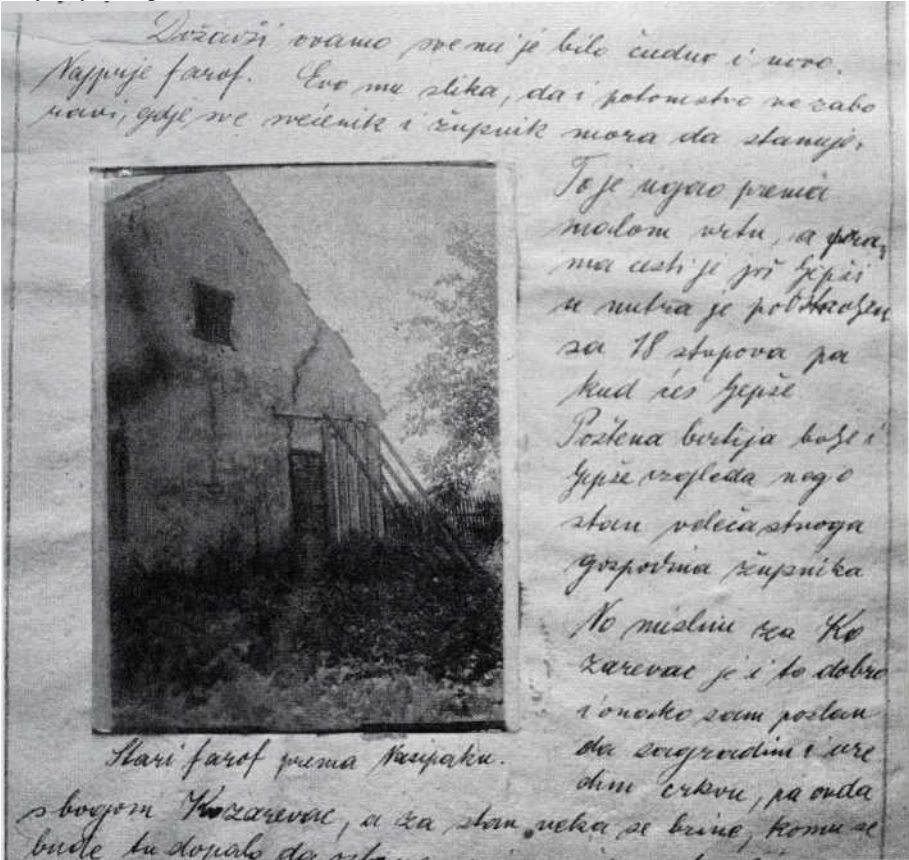 Došavši ovamo sve mi je bilo čudno i novo.
Najprije farof. Evo mu slika, da i potomstvo ne zabo
ravi, gdje sve svećenik i župnik mora da stanuje.
To je ugao prema
malom vrtu, a pre
ma cesti je još ljepši
u nutra je podstavljen
sa 18 stupova pa
kud ćeš ljepše
Poštena birtija bolje i
ljepše izgleda nego
stan velečasnoga
gospodina župnika
No mislim za Ko
zarevac je i to dobro
i onako sam poslan
da sagradim i ure
dim crkvu, pa onda
Stari farof prema Nasipaku.
s bogom Kozarevac, a za stan neka se brine, komu se
bude tu dopalo da